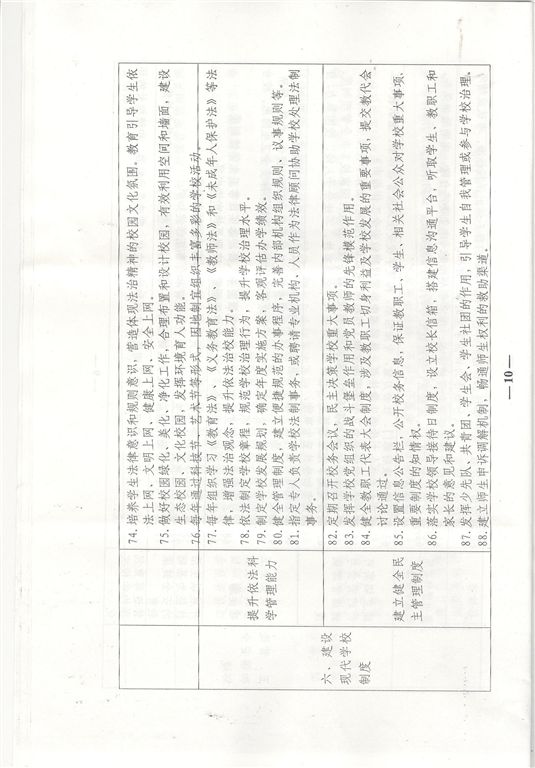 74. 培养学生法律意识和规则意识，营造体现法治精神的校园文化氛围。教育引导学生依
法上网、文明上网、健康上网、安全上网。
75. 做好校园绿化、美化、净化工作，合理布置和设计校园，有效利用空间和墙面，建设
生态校园、文化校园，发挥环境育人功能。
76. 每年通过科技节、艺术节等形式，因地制宜组织丰富多彩的学校活动。
提升依法科
学管理能力
77. 每年组织学习《教育法》、《义务教育法》、《教师法》和《未成年人保护法》等法
律，增强法治观念，提升依法治校能力。
78. 依法制定学校章程，规范学校治理行为，提升学校治理水平。
79. 制定学校发展规划，确定年度实施方案，客观评估办学绩效。
80. 健全管理制度，建立便捷规范的办事程序，完善内部机构组织规则、议事规则等。
81. 指定专人负责学校法制事务，或聘请专业机构、人员作为法律顾问协助学校处理法制
事务。
六、建设
现代学校
制度
建立健全民
主管理制度
82. 定期召开校务会议，民主决策学校重大事项。
83. 发挥学校党组织的战斗堡垒作用和党员教师的先锋模范作用。
84. 健全教职工代表大会制度，涉及教职工切身利益及学校发展的重要事项，提交教代会
讨论通过。
85. 设置信息公告栏，公开校务信息，保证教职工、学生、相关社会公众对学校重大事项、
重要制度的知情权。
86. 落实学校领导接待日制度，设立校长信箱，搭建信息沟通平台，听取学生、教职工和
家长的意见和建议。
87. 发挥少先队、共青团、学生会、学生社团的作用，引导学生自我管理或参与学校治理。
88. 建立师生申诉调解机制，畅通师生权利的救助渠道。
— 10 —